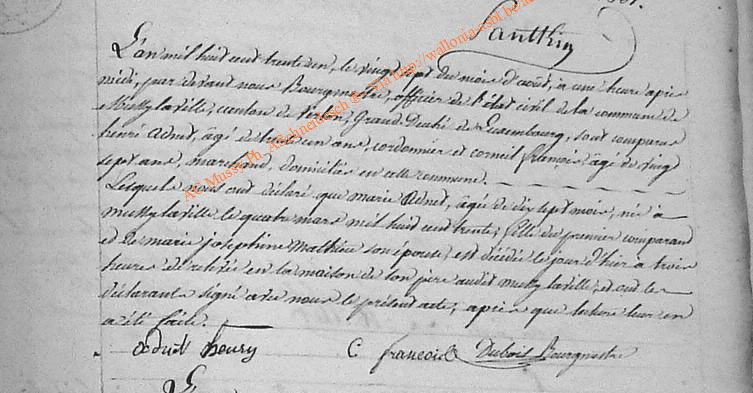 L'an mil huit cent trente un, le vingt sept du mois d'août, à une heure après
midi, par devant nous Bourgmestre, officier de l'état civil de la commune de
Mussy la ville, canton de Grand Duché de Luxembourg, sont comparus
henri Adnet, âgé de trente un ans, cordonnier et corneil françois âgé de vingt
sept ans, marchand, domiciliés en cette commune.
Lesquels nous ont déclaré que marie Adnet, âgée de dix sept mois, née à
mussy la ville le quatre mars mil huit cent trente, fille du premier comparant
et de marie josephine Mathieu son épouse, est décédée le jour d'hier à trois
heures de relevée en la maison de son père audit mussy la ville, et ont les
déclarants signé avec nous le présent acte, après que lecture leur en
a été faite.
adnet henry C françois Dubois Bourgmestre